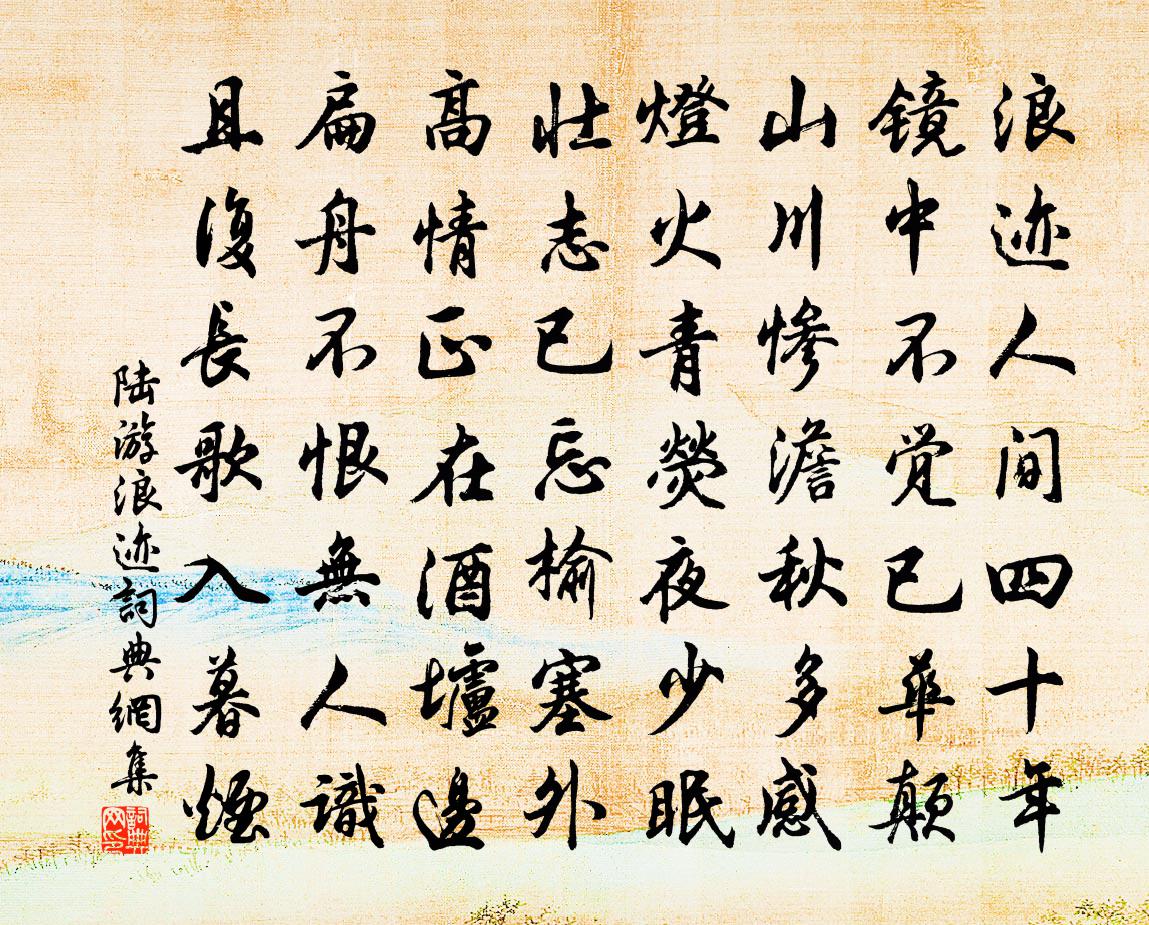 浪迹人间四十年
镜中不觉已华颠
山川惨澹秋多感
燈火青熒夜少眠
壮志已忘榆塞外
高情正在酒壚邊
扁舟不恨無人識
且復長歌入暮煙
陆游浪迹詞典網集
詞典网印